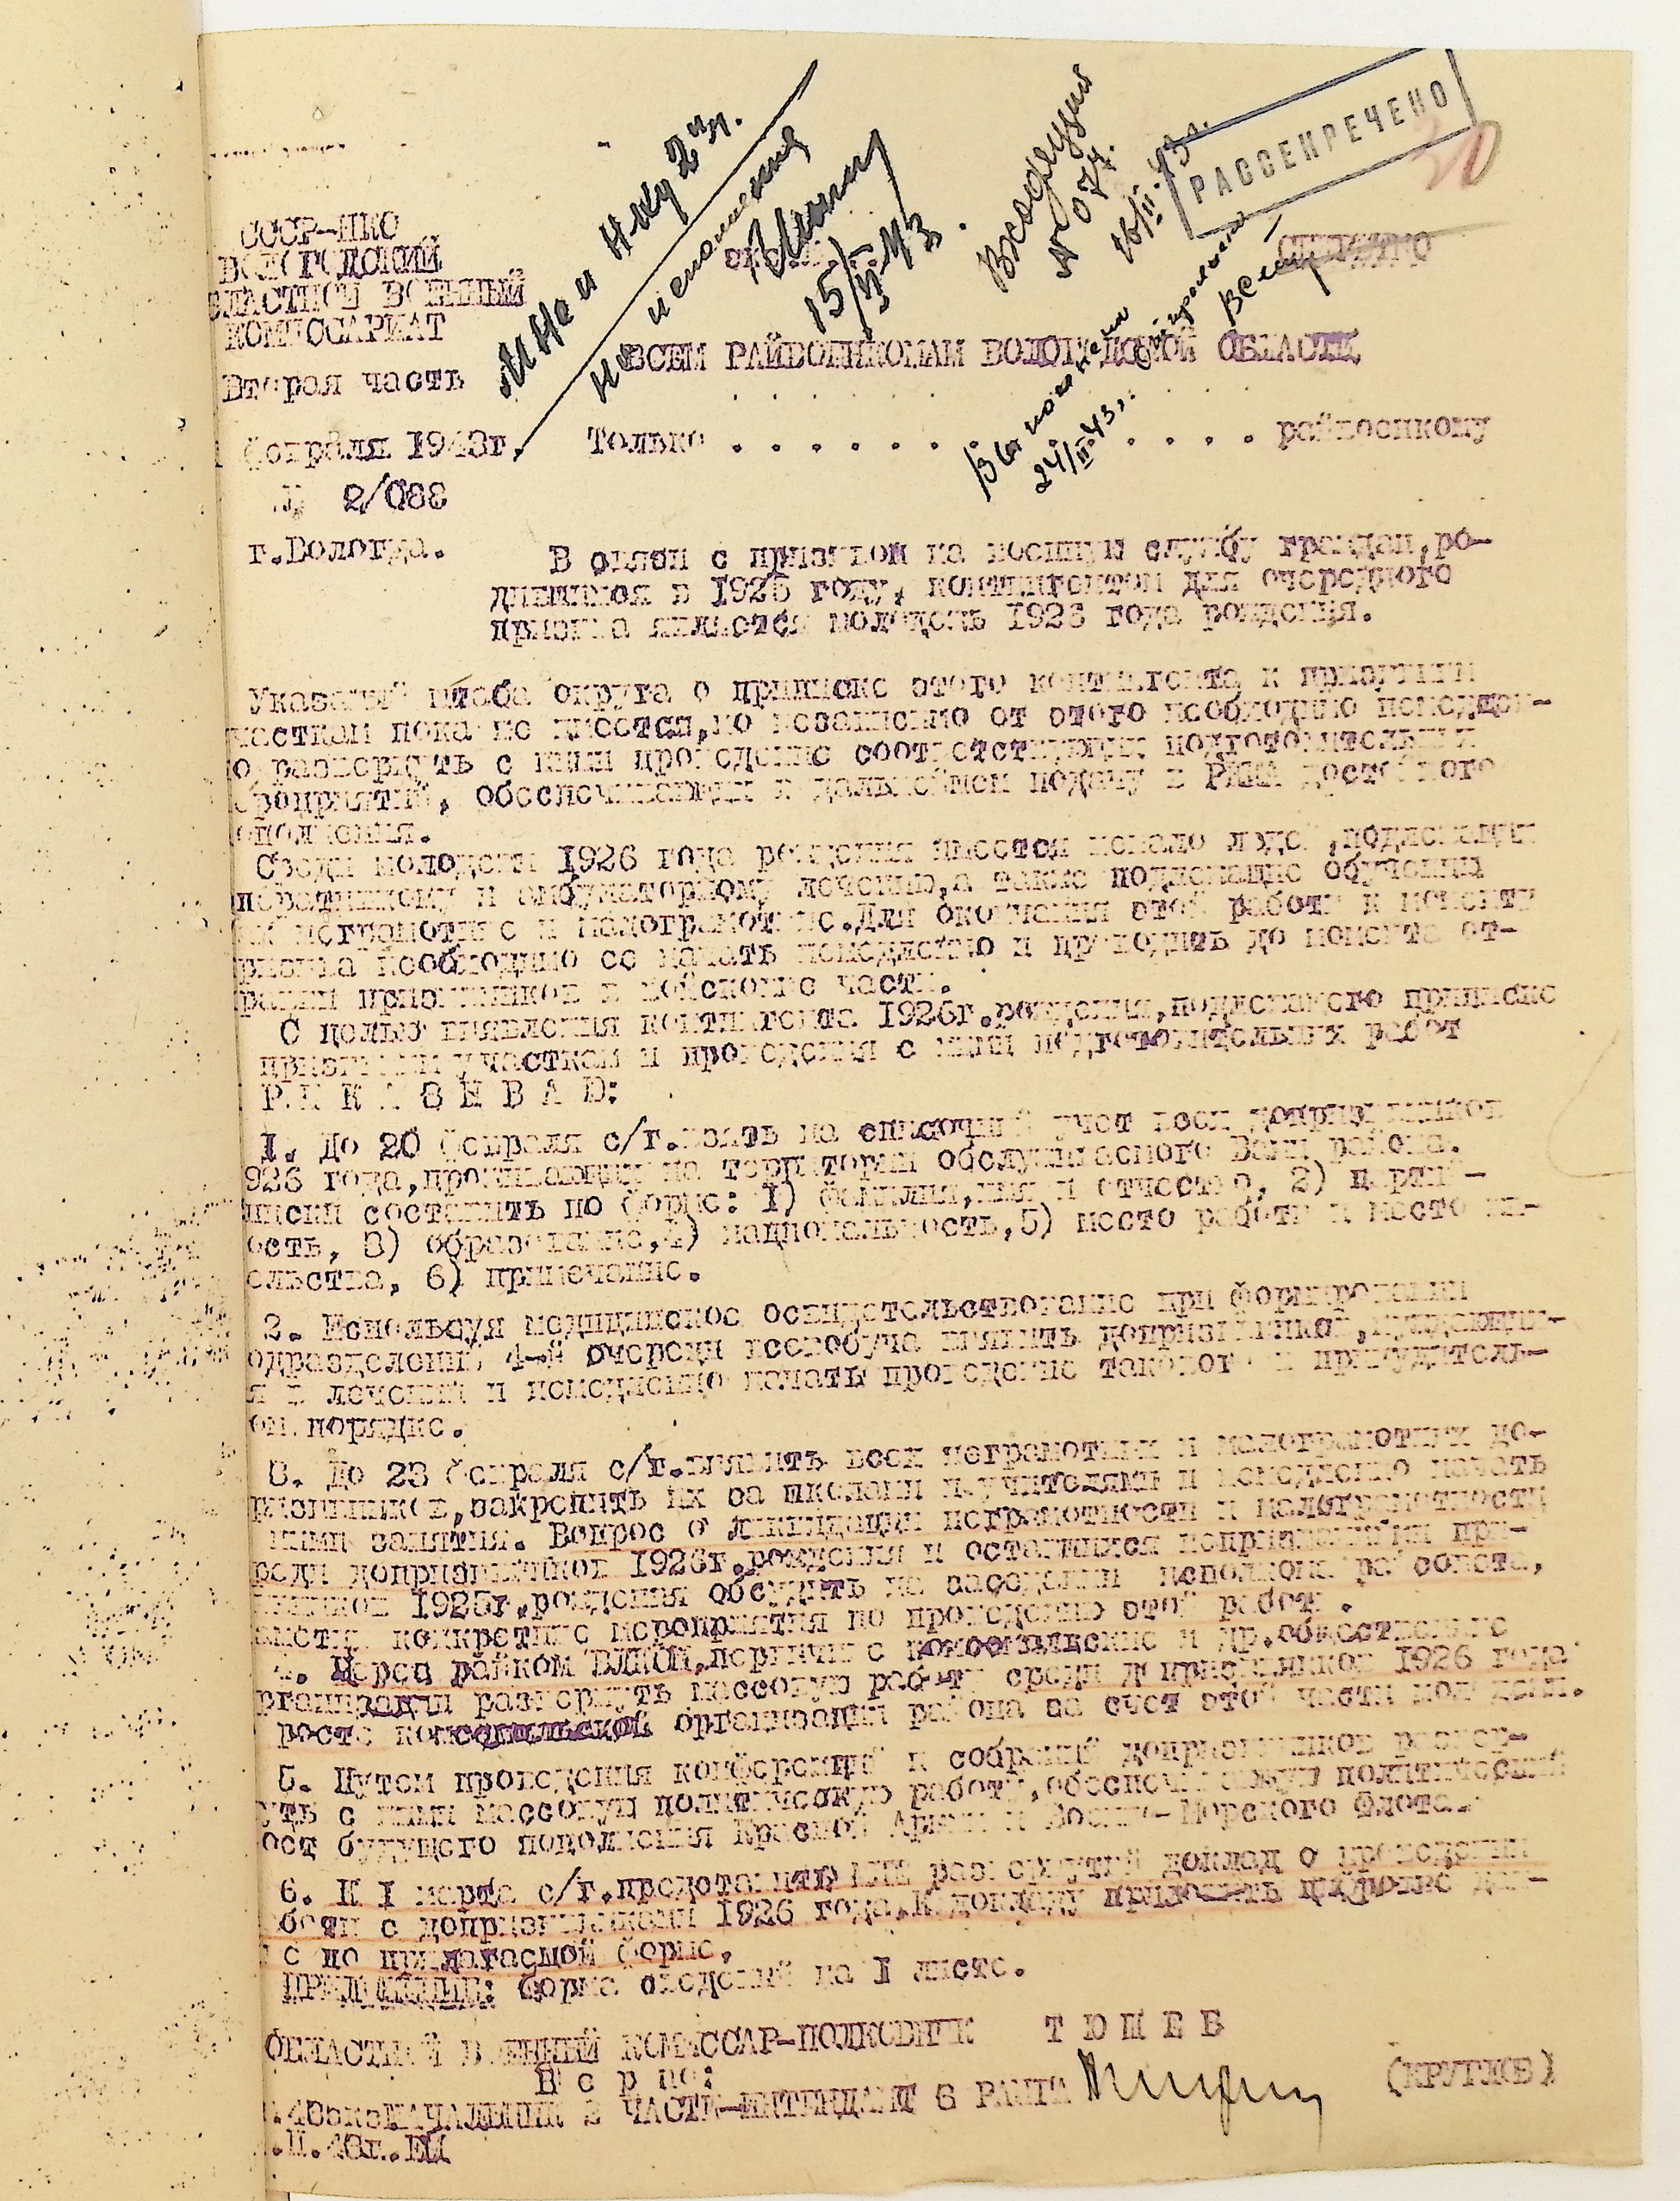 РАССЕКРЕЧЕНО
20
СССР-НКО
ВОЛОГОДСКИЙ
БЛАСТНОЙ ВОЕННЫЙ
КОМИССАРИАТ
Вторая часть
февраля 1943г.
№ 2/088
г.Вологда.
Нач 2 ч.
к исполнению
15/II-43
Всем РАЙВОЕНКОМАМ ВОЛОГОДСКОЙ ОБЛАСТИ
Только . . . . . . . . . . . . райвоенкому
№ 074.
16/II-43г.
24/II-43г.
В связи с призывом на военную службу граждан,ро-
дившихся в 1925 году, контингентом для очередного
призыва является молодежь 1926 года рождения.
Указаний штаба округа о приписке этого контингента к призывным
часткам пока не имеется,но независимо от этого необходимо немедлен-
о развернуть с ними проведение соответствующих подготовительных
роприятий, обеспечивающих в дальнейшем подачу в РККА достойного
ополнения.
Среди молодежи 1926 года рождения имеется немало людей,подлежащих
перативному и амбулаторному лечению,а также подлежащие обучению
ак неграмотные и малограмотные.Для окончания этой работы к моменту
ризыва необходимо ее начать немедленно и проводить до момента от-
равки призывников в войсковые части.
С целью выявления контингента 1926г.рождения,подлежащего приписке
призывным участкам и проведения с ними подготовительных работ
Р.И К А З Ы В А Ю:
1. До 20 февраля с/г.взять на списочный учет всех допризывников
926 года,проживающих на территории обслуживаемого Вами района.
писки составить по форме: 1) фамилия,имя и отчество, 2) партий-
ость, 3) образование,4) национальность,5) место работы и место жи-
ельства, 6) примечание.
2. Используя медицинское освидетельствование при формировании
одразделений 4-й очереди всеобуча выявить допризывников,нуждающих-
я в лечении и немедленно начать проведение такового в принудитель-
ом порядке.
3. До 23 февраля с/г.выявить всех неграмотных и малограмотных до-
ризывников,закрепить их за школами и учителями и немедленно начать
ними занятия. Вопрос о ликвидации неграмотности и малограмотности
реди допризывников 1926г.рождения и оставшихся непризванными при-
ывников 1925г.рождения обсудить на заседании исполкома райсовета,
аметив конкретные мероприятия по проведению этой работы.
4. Через райком ВЛКСМ,первичные комсомольские и др.общественные
рганизации развернуть массовую работу среди допризывников 1926 года
росте комсомольской организации района за счет этой части молодежи.
5. Путем проведения конференций и собраний допризывников развер-
уть с ними массовую политическую работу,обеспечивающую политический
ост будущего пополнения Красной Армии и Военно-Морского Флота.
6. К 1 марта с/г.представить мне развернутый доклад о проведении
боты с допризывниками 1926 года.К докладу приложить цифровые дан-
е по прилагаемой форме.
ПРИЛОЖЕНИЕ: форма сведений на 1 листе.
ОБЛАСТНОЙ ВОЕННЫЙ КОМИССАР-ПОЛКОВНИК Т Ю Ш Е В
В е р н о:
.40экз НАЧАЛЬНИК 2 ЧАСТИ-ИНТЕНДАНТ 3 РАНГА (КРУГЛОВ)
.II.43г.